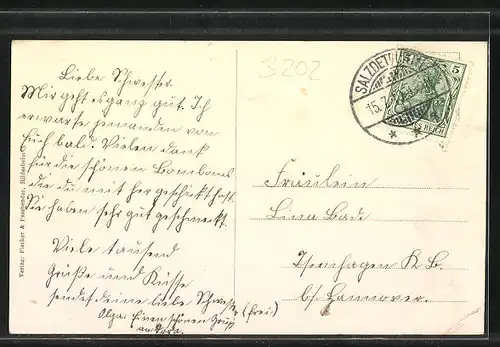 Liebe Schwester.
Mir geht es ganz gut. Ich
erwarte jemanden von
Euch bald. Vielen dank
für die schönen Bombons
die du mit her geschickt hast.
Sie haben sehr gut geschmeckt.
Viele tausend
Grüße und Küsse
sendet deine liebe Schwester
Olga. Einen schönen Gruß
an
(frei)
3202
SALZDETFURTH
15.7.
5
REICH
Fräulein
Lina Bade
Isenhagen K. B.
b/ Hannover.
Verlag: Fischer & Fassender, Hildesheim